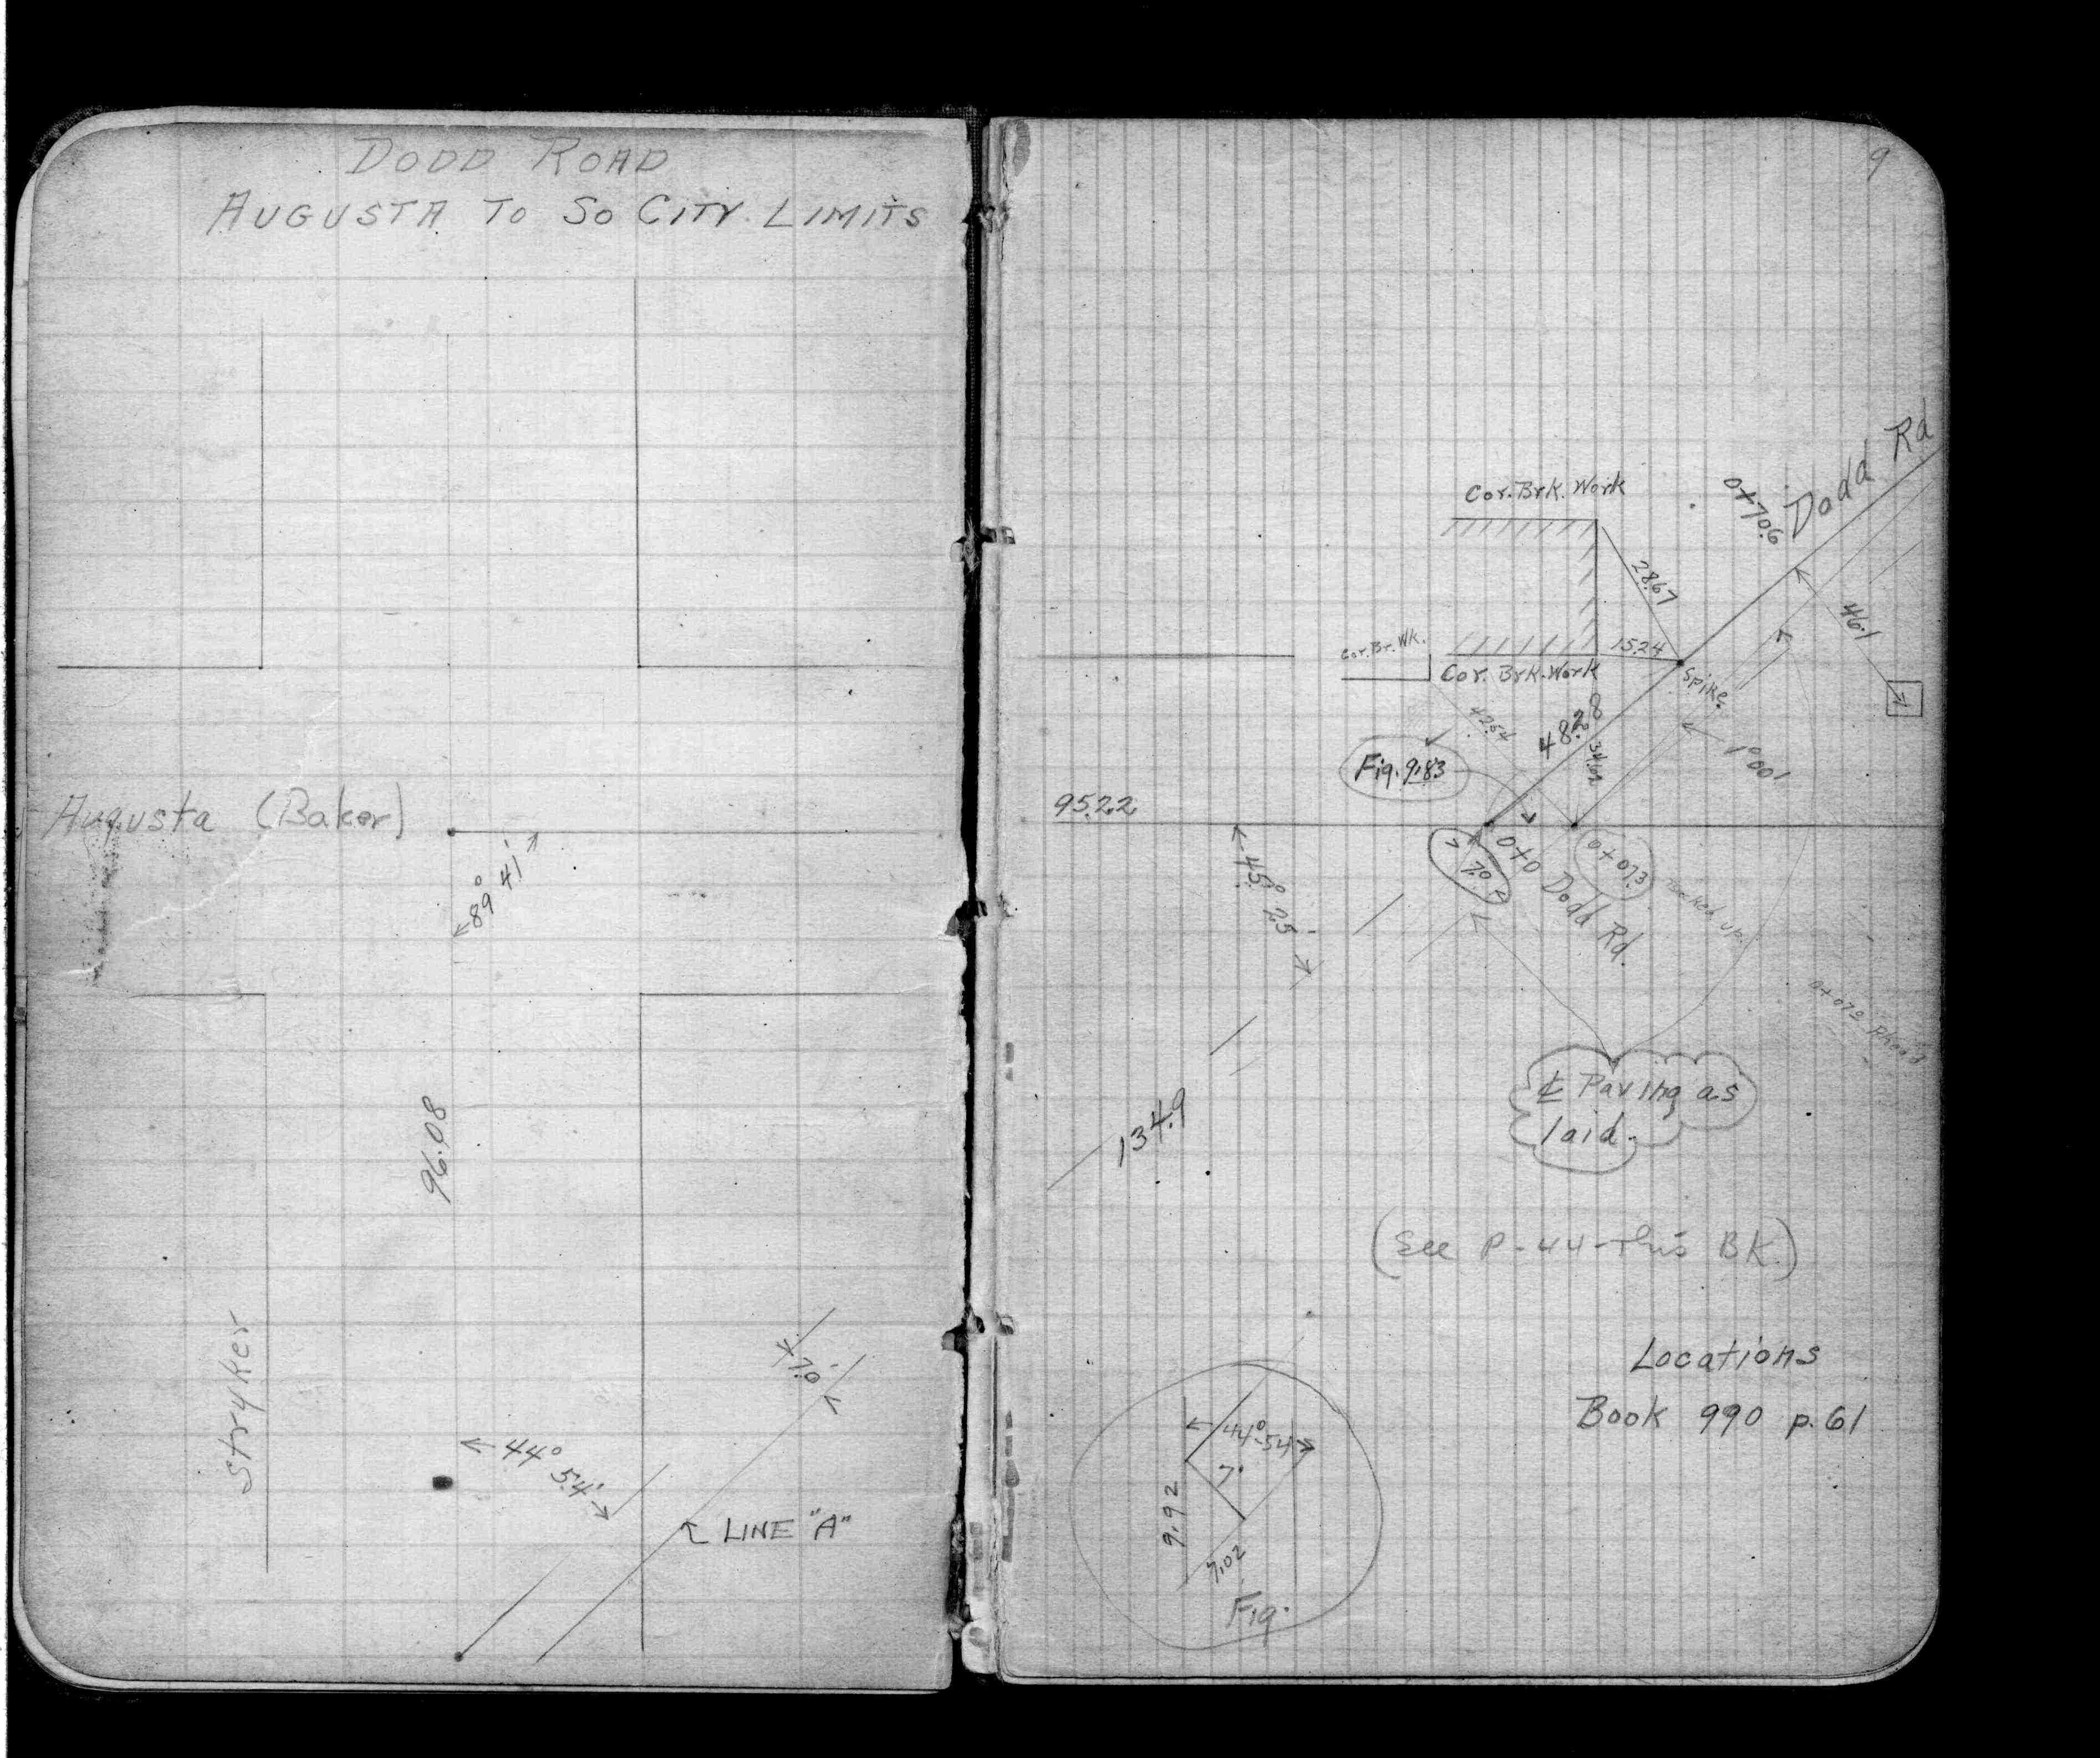 DODD ROAD
AUGUSTA TO SO CITY LIMITS
Augusta (Baker)
89° 41'
96.08
Stryker
7.0'
44° 54'
LINE "A"
9
Dodd Rd
0+70.6
Cor. Brk. Work
28.67
46.1
Cor. Br. Wk.
15.24
Cor. Brk. Work
Spike
42.64
48.28
34.02
Fig. 9.83
1.00'
95.22
7.0'
0+0 Dodd Rd.
0+073
45° 25'
0+073 Ahead
℄ Paving as
laid.
134.9
(See P-44-This BK.)
Locations
Book 990 p. 61
44°-54'
7.
9.92
7.02
Fig.